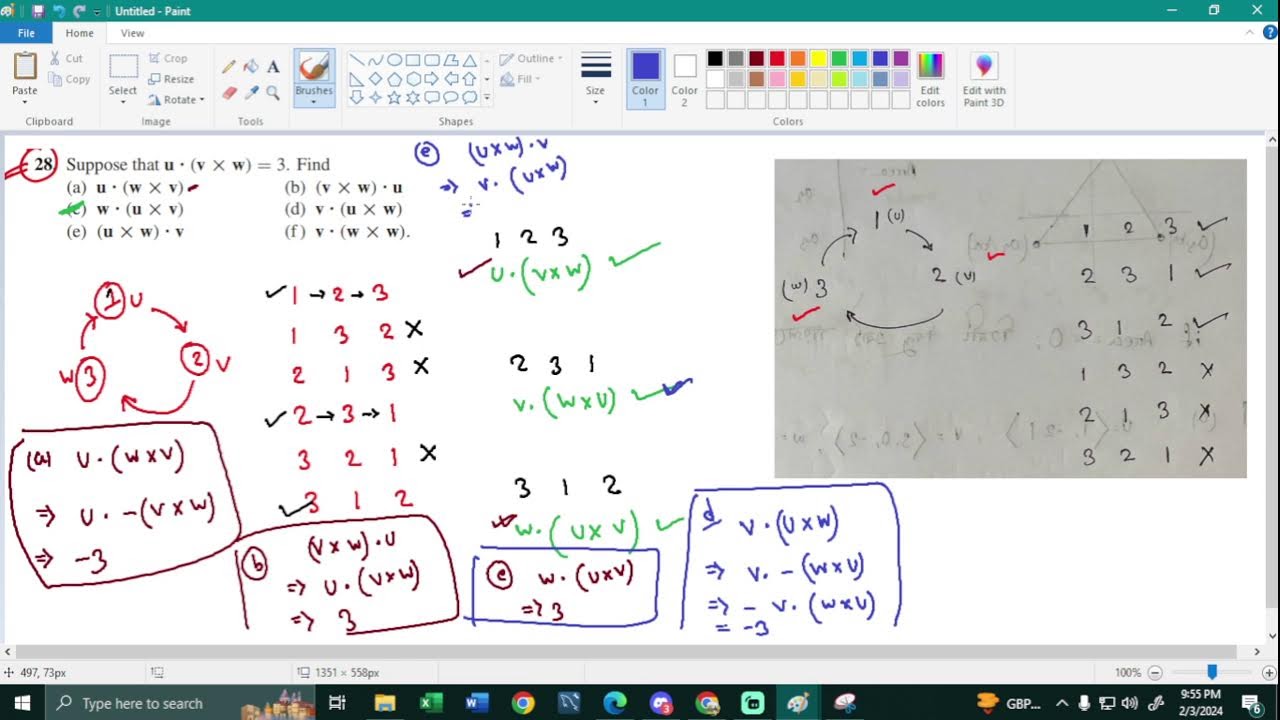 Untitled - Paint
File Home View
Paste
Cut
Copy
Clipboard
Select
Crop
Resize
Rotate
Image
Tools
Brushes
Shapes
Outline
Fill
Size
Color 1
Color 2
Colors
Edit colors
Edit with Paint 3D
28 Suppose that u · (v × w) = 3. Find
(a) u · (w × v) (b) (v × w) · u
(c) w · (u × v) (d) v · (u × w)
(e) (u × w) · v (f) v · (w × w).
(e) (U×W)·V
=> V·(U×W)
=
1 2 3
U·(V×W) ✓
2 3 1
V·(W×U) ✓
3 1 2
W·(U×V) ✓
1 U
2 V
W 3
✓ 1 → 2 → 3
1 3 2 ×
2 1 3 ×
✓ 2 → 3 → 1
3 2 1 ×
✓ 3 1 2
(a) U·(W×V)
=> U·-(V×W)
=> -3
(b) (V×W)·U
=> U·(V×W)
=> 3
W·(U×V)
=> 3
d V·(U×W)
=> V·-(W×U)
=> - V·(W×U)
= -3
1 (U)
2 (V)
(W) 3
1 2 3 ✓
2 3 1 ✓
3 1 2 ✓
1 3 2 ×
2 1 3 ×
3 2 1 ×
497, 73px
1351 × 558px
100%
Type here to search
GBP...
9:55 PM
2/3/2024